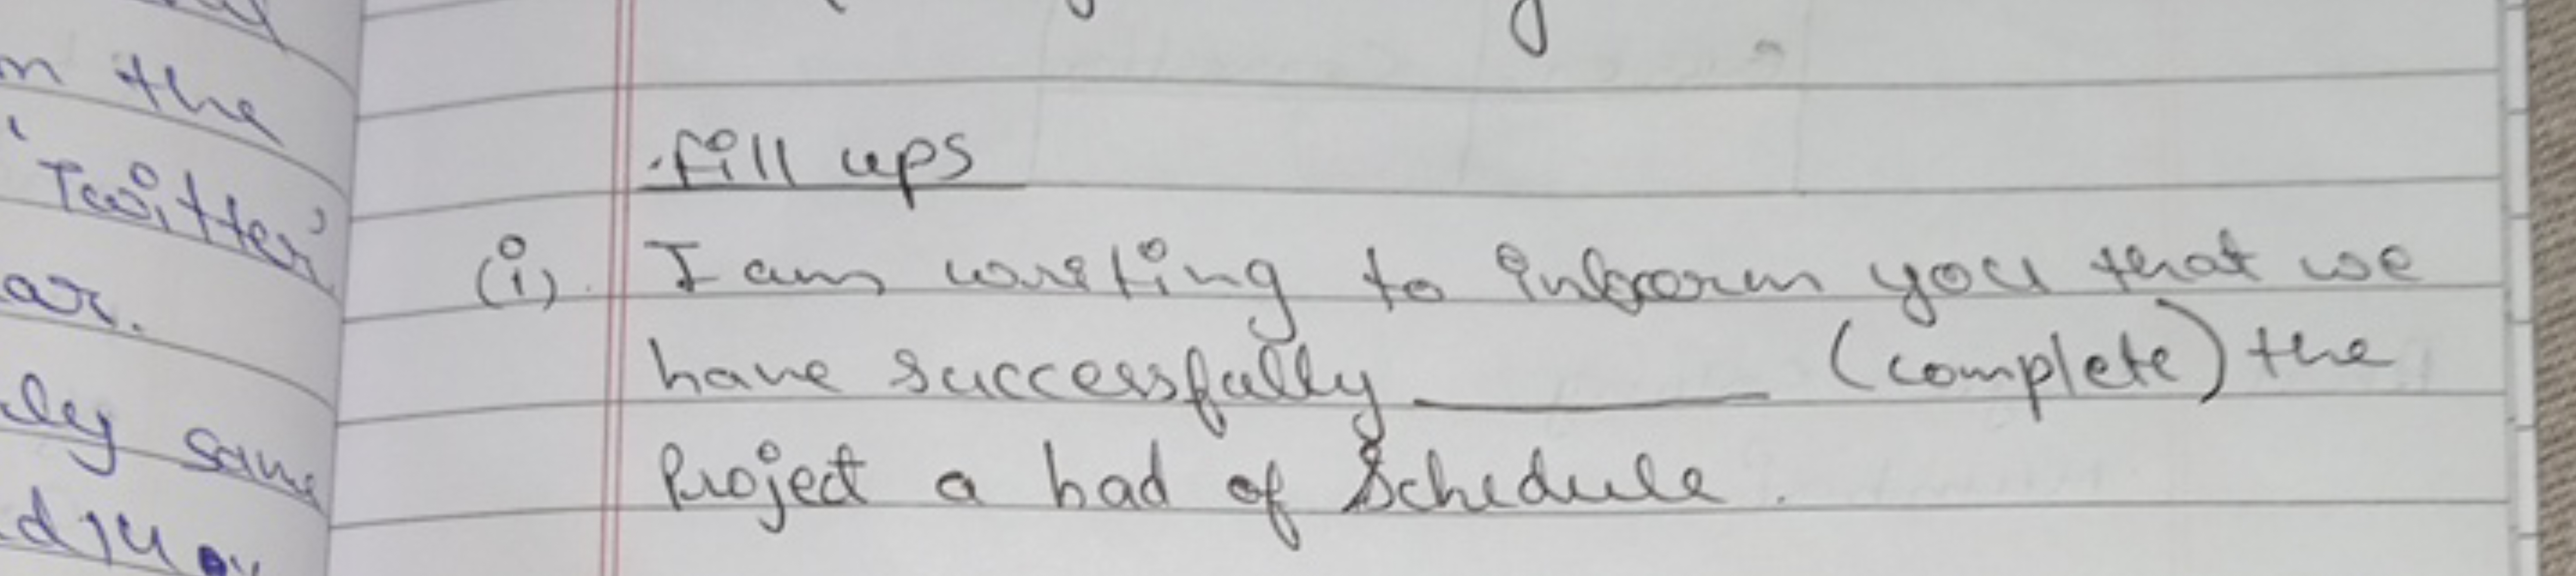 m the
'Twitter'
ar.
same
fill ups
(i). I am writing to inform you that we
have successfully ________ (complete) the
Project a had of Schedule.